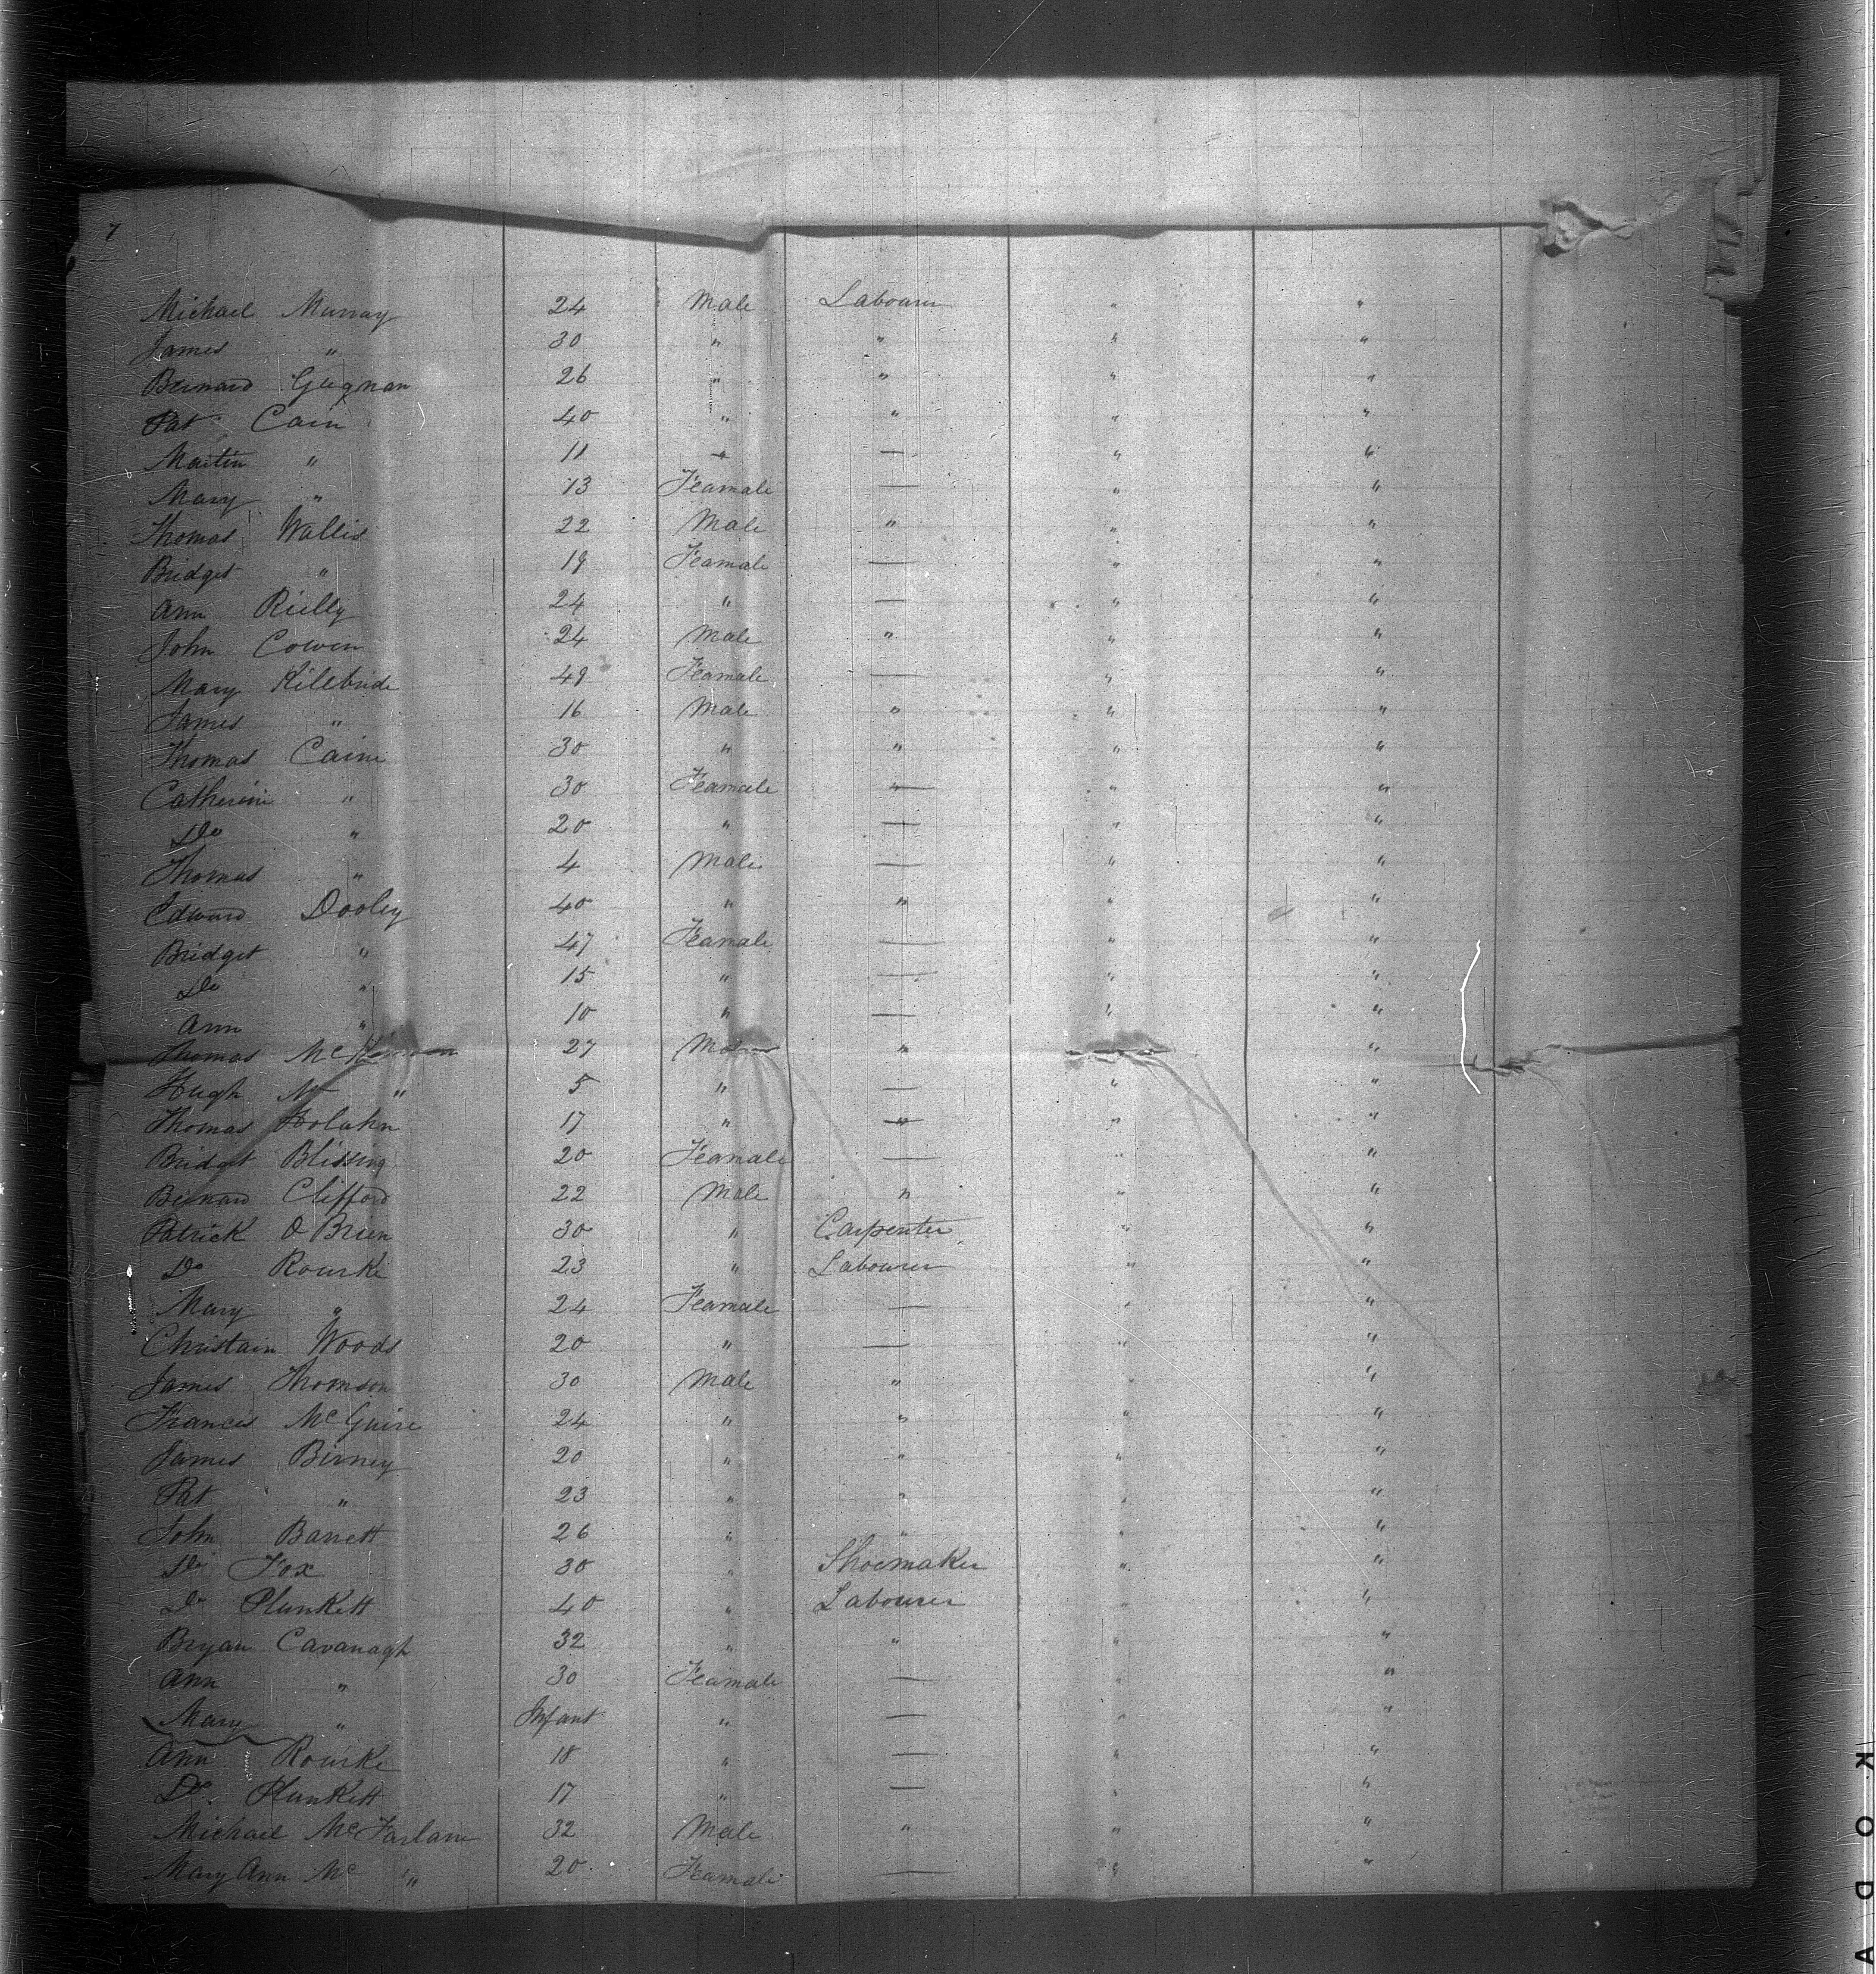 7
Michael Murray 24 Male Labourer " "
James " 30 " " " "
Bernard Gugnan 26 " " " "
Pat Cain 40 " " " "
Martin " 11 " — " "
Mary " 13 Feamale — " "
Thomas Wallis 22 Male " " "
Bridget " 19 Feamale — " "
Ann Rielly 24 " — " "
John Cowen 24 Male " " "
Mary Killbride 49 Feamale — " "
James " 16 Male " " "
Thomas Caine 30 " " " "
Catherine " 30 Feamale — " "
Do " 20 " — " "
Thomas " 4 Male — " "
Edward Dooley 40 " " " "
Bridget " 47 Feamale — " "
Do " 15 " — " "
Ann " 10 " — " "
Thomas 27 " "
Hugh Mc " 5 " — " "
Thomas Holahn 17 " " " "
Bridget Blissing 20 Feamale — " "
Bernard Clifford 22 Male " " "
Patrick O Brien 30 " Carpenter " "
Do Rourke 23 " Labourer " "
Mary " 24 Feamale — " "
Christain Woods 20 " — " "
James Thomson 30 Male " " "
Frances McGuire 24 " " " "
James Birney 20 " " " "
Pat " 23 " " " "
John Barrett 26 " " " "
Do Fox 30 " Shoemaker " "
Do Plunkett 40 " Labourer " "
Bryan Cavanagh 32 " " " "
Ann " 30 Feamale — " "
Mary " Infant " — " "
Ann Rourke 18 " — " "
Do. Plunkett 17 " — " "
Michael McFarlane 32 Male " " "
Mary Ann Mc " 20 Feamale — " "